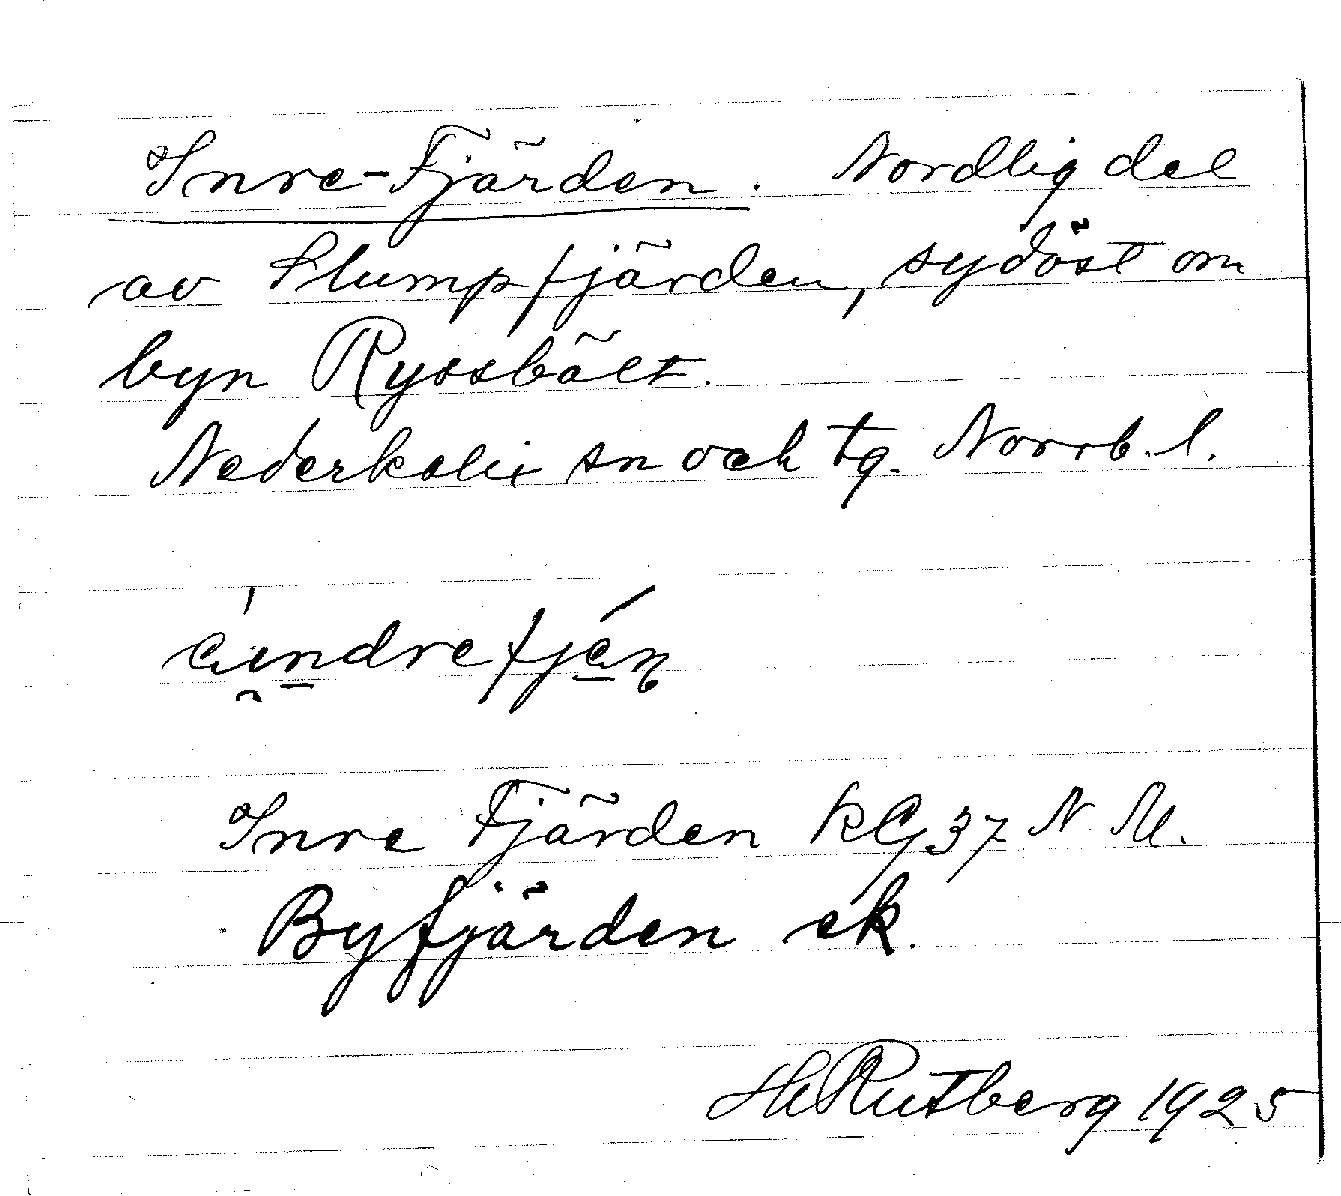 Inre-Fjärden. Nordlig del
av Slumpfjärden, sydöst om
byn Ryssbält.
Nederkalix sn och tg. Norrb. l.
Inre Fjärden KG 37 N. M.
Byfjärden ek.
H Rutberg 1925